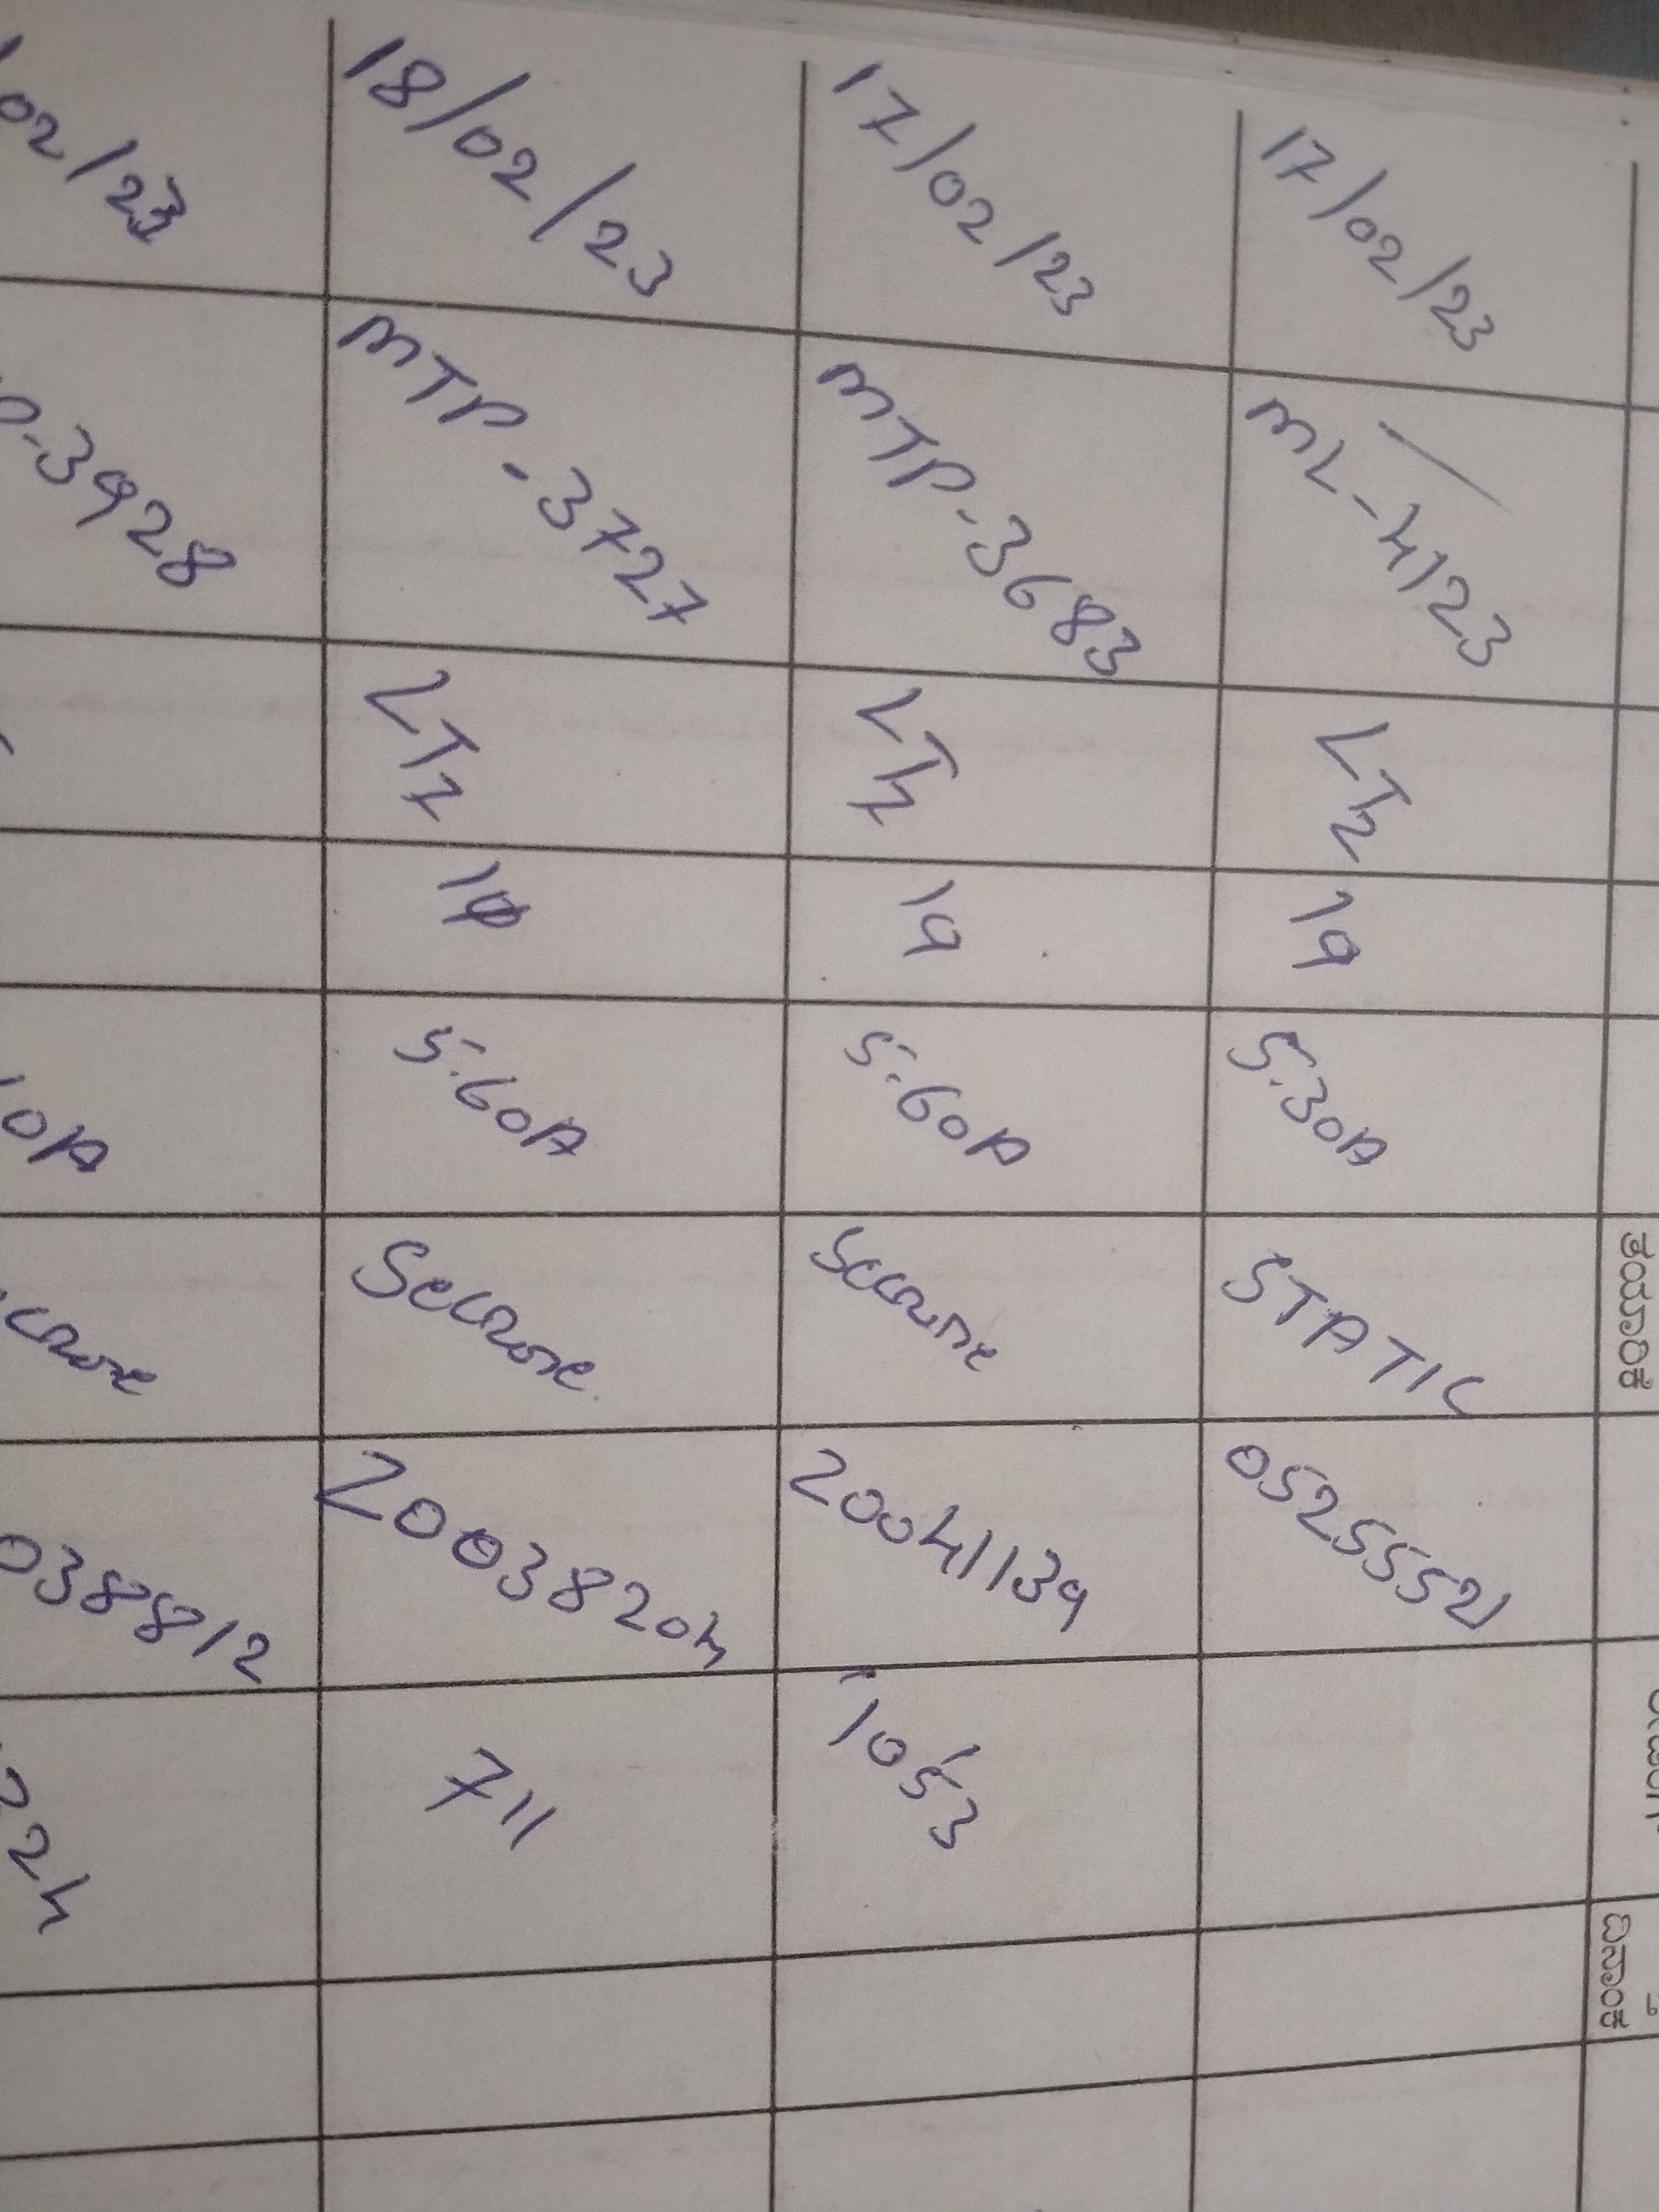 ತಯಾರಿಕೆ
ದಿನಾಂಕ
17/02/23 ML-4123 LT2 1φ 5-30A STATIC 05255521
17/02/23 MTP-3683 LT2 1φ 5-60A Secure 20041139 1053
18/02/23 MTP-3727 LT2 1φ 5-60A Secure 20038204 711
02/23 P-3928 0A cure 038812 24